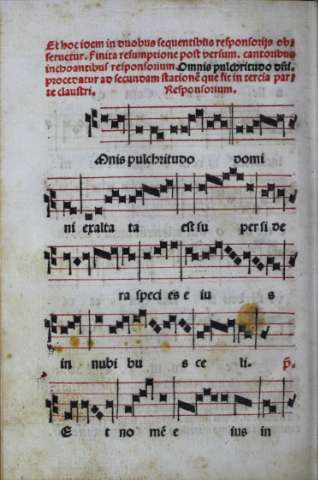 Et hoc idem in duobus sequentibus responsorijs ob⸗
seruetur. Finita resumptione post versum. cantoribus
inchoantibus responsorium Omnis pulchritudo dñi.
procedatur ad secundam stationē que fit in tercia par⸗
te claustri. Responsorium.
Omnis pulchritudo domi
ni exalta ta est su per si de
ra speci es e iu s
in nubi bu s ce li. p̄.
E t no mē e ius in